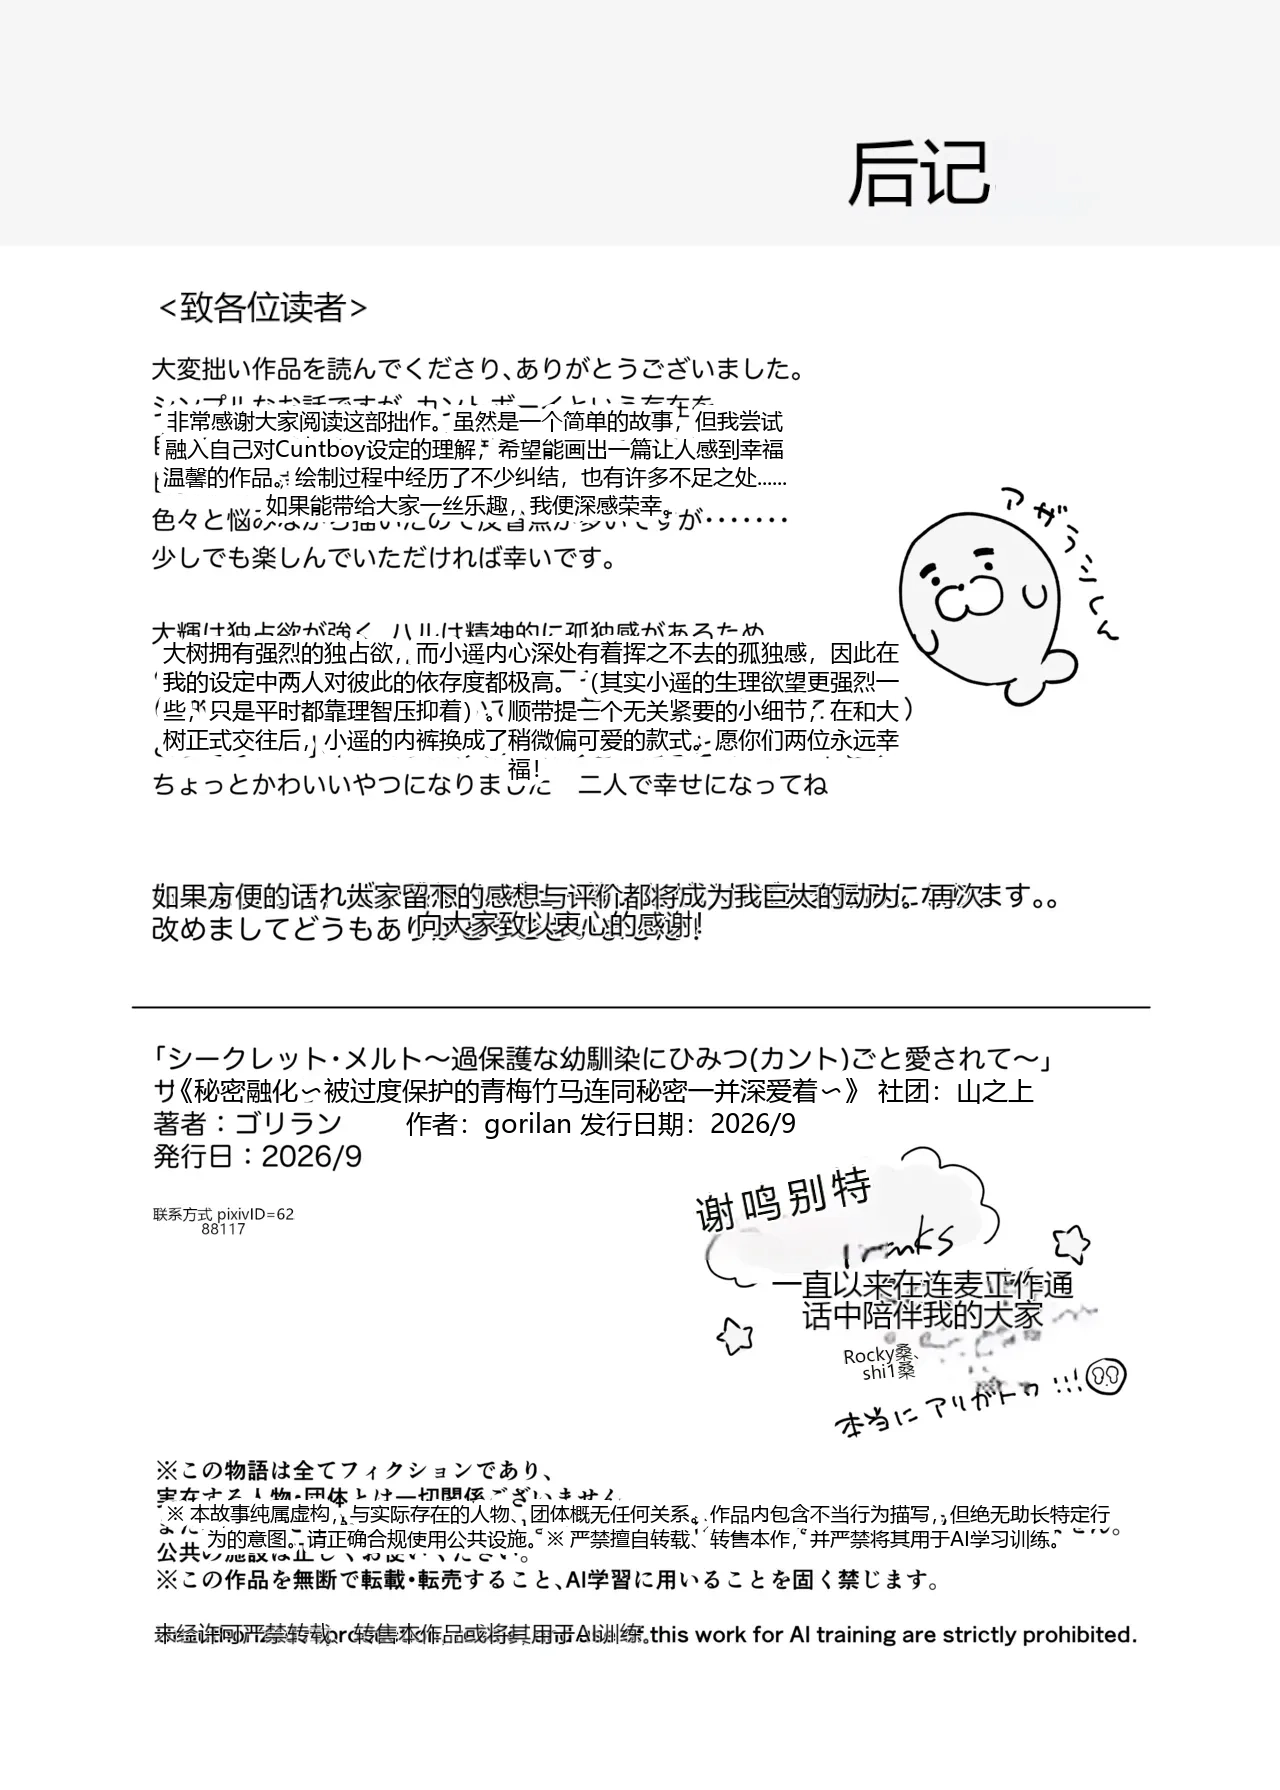 后记
<致各位读者>
大変拙い作品を読んでくださり、ありがとうございました。
シンプルなお話ですが、カントボーイという存在を
非常感谢大家阅读这部拙作。虽然是一个简单的故事，但我尝试
融入自己对Cuntboy设定的理解，希望能画出一篇让人感到幸福
温馨的作品。绘制过程中经历了不少纠结，也有许多不足之处......
如果能带给大家一丝乐趣，我便深感荣幸。
色々と悩みながら描いたので反省点が多いですが・・・・・・・
少しでも楽しんでいただければ幸いです。
アザラシくん
大輝は独占欲が強く、ハルは精神的に孤独感があるため
大树拥有强烈的独占欲，而小遥内心深处有着挥之不去的孤独感，因此在
我的设定中两人对彼此的依存度都极高。（其实小遥的生理欲望更强烈一
些，只是平时都靠理智压抑着）。顺带提一个无关紧要的小细节，在和大
树正式交往后，小遥的内裤换成了稍微偏可爱的款式。愿你们两位永远幸
福！
ちょっとかわいいやつになりました　二人で幸せになってね
如果方便的话，大家留下的感想与评价都将成为我巨大的动力。再次ます。。
改めましてどうもあり向大家致以衷心的感谢!
「シークレット・メルト～過保護な幼馴染にひみつ(カント)ごと愛されて～」
サ《秘密融化～被过度保护的青梅竹马连同秘密一并深爱着～》 社团：山之上
著者：ゴリラン 作者：gorilan 发行日期：2026/9
発行日：2026/9
联系方式 pixivID=62
88117
谢鸣别特
一直以来在连麦亚作通
话中陪伴我的大家
Rocky桑、
shi1桑
本当にアリガトウ!!!
※この物語は全てフィクションであり、
実在する人物・団体とは一切関係ございません
※ 本故事纯属虚构，与实际存在的人物、团体概无任何关系。作品内包含不当行为描写，但绝无助长特定行
为的意图。请正确合规使用公共设施。※ 严禁擅自转载、转售本作，并严禁将其用于AI学习训练。
公共の施設は正しくお使いください。
※この作品を無断で転載・転売すること、AI学習に用いることを固く禁じます。
未经许可严禁转载、转售本作品或将其用于AI训练。this work for AI training are strictly prohibited.